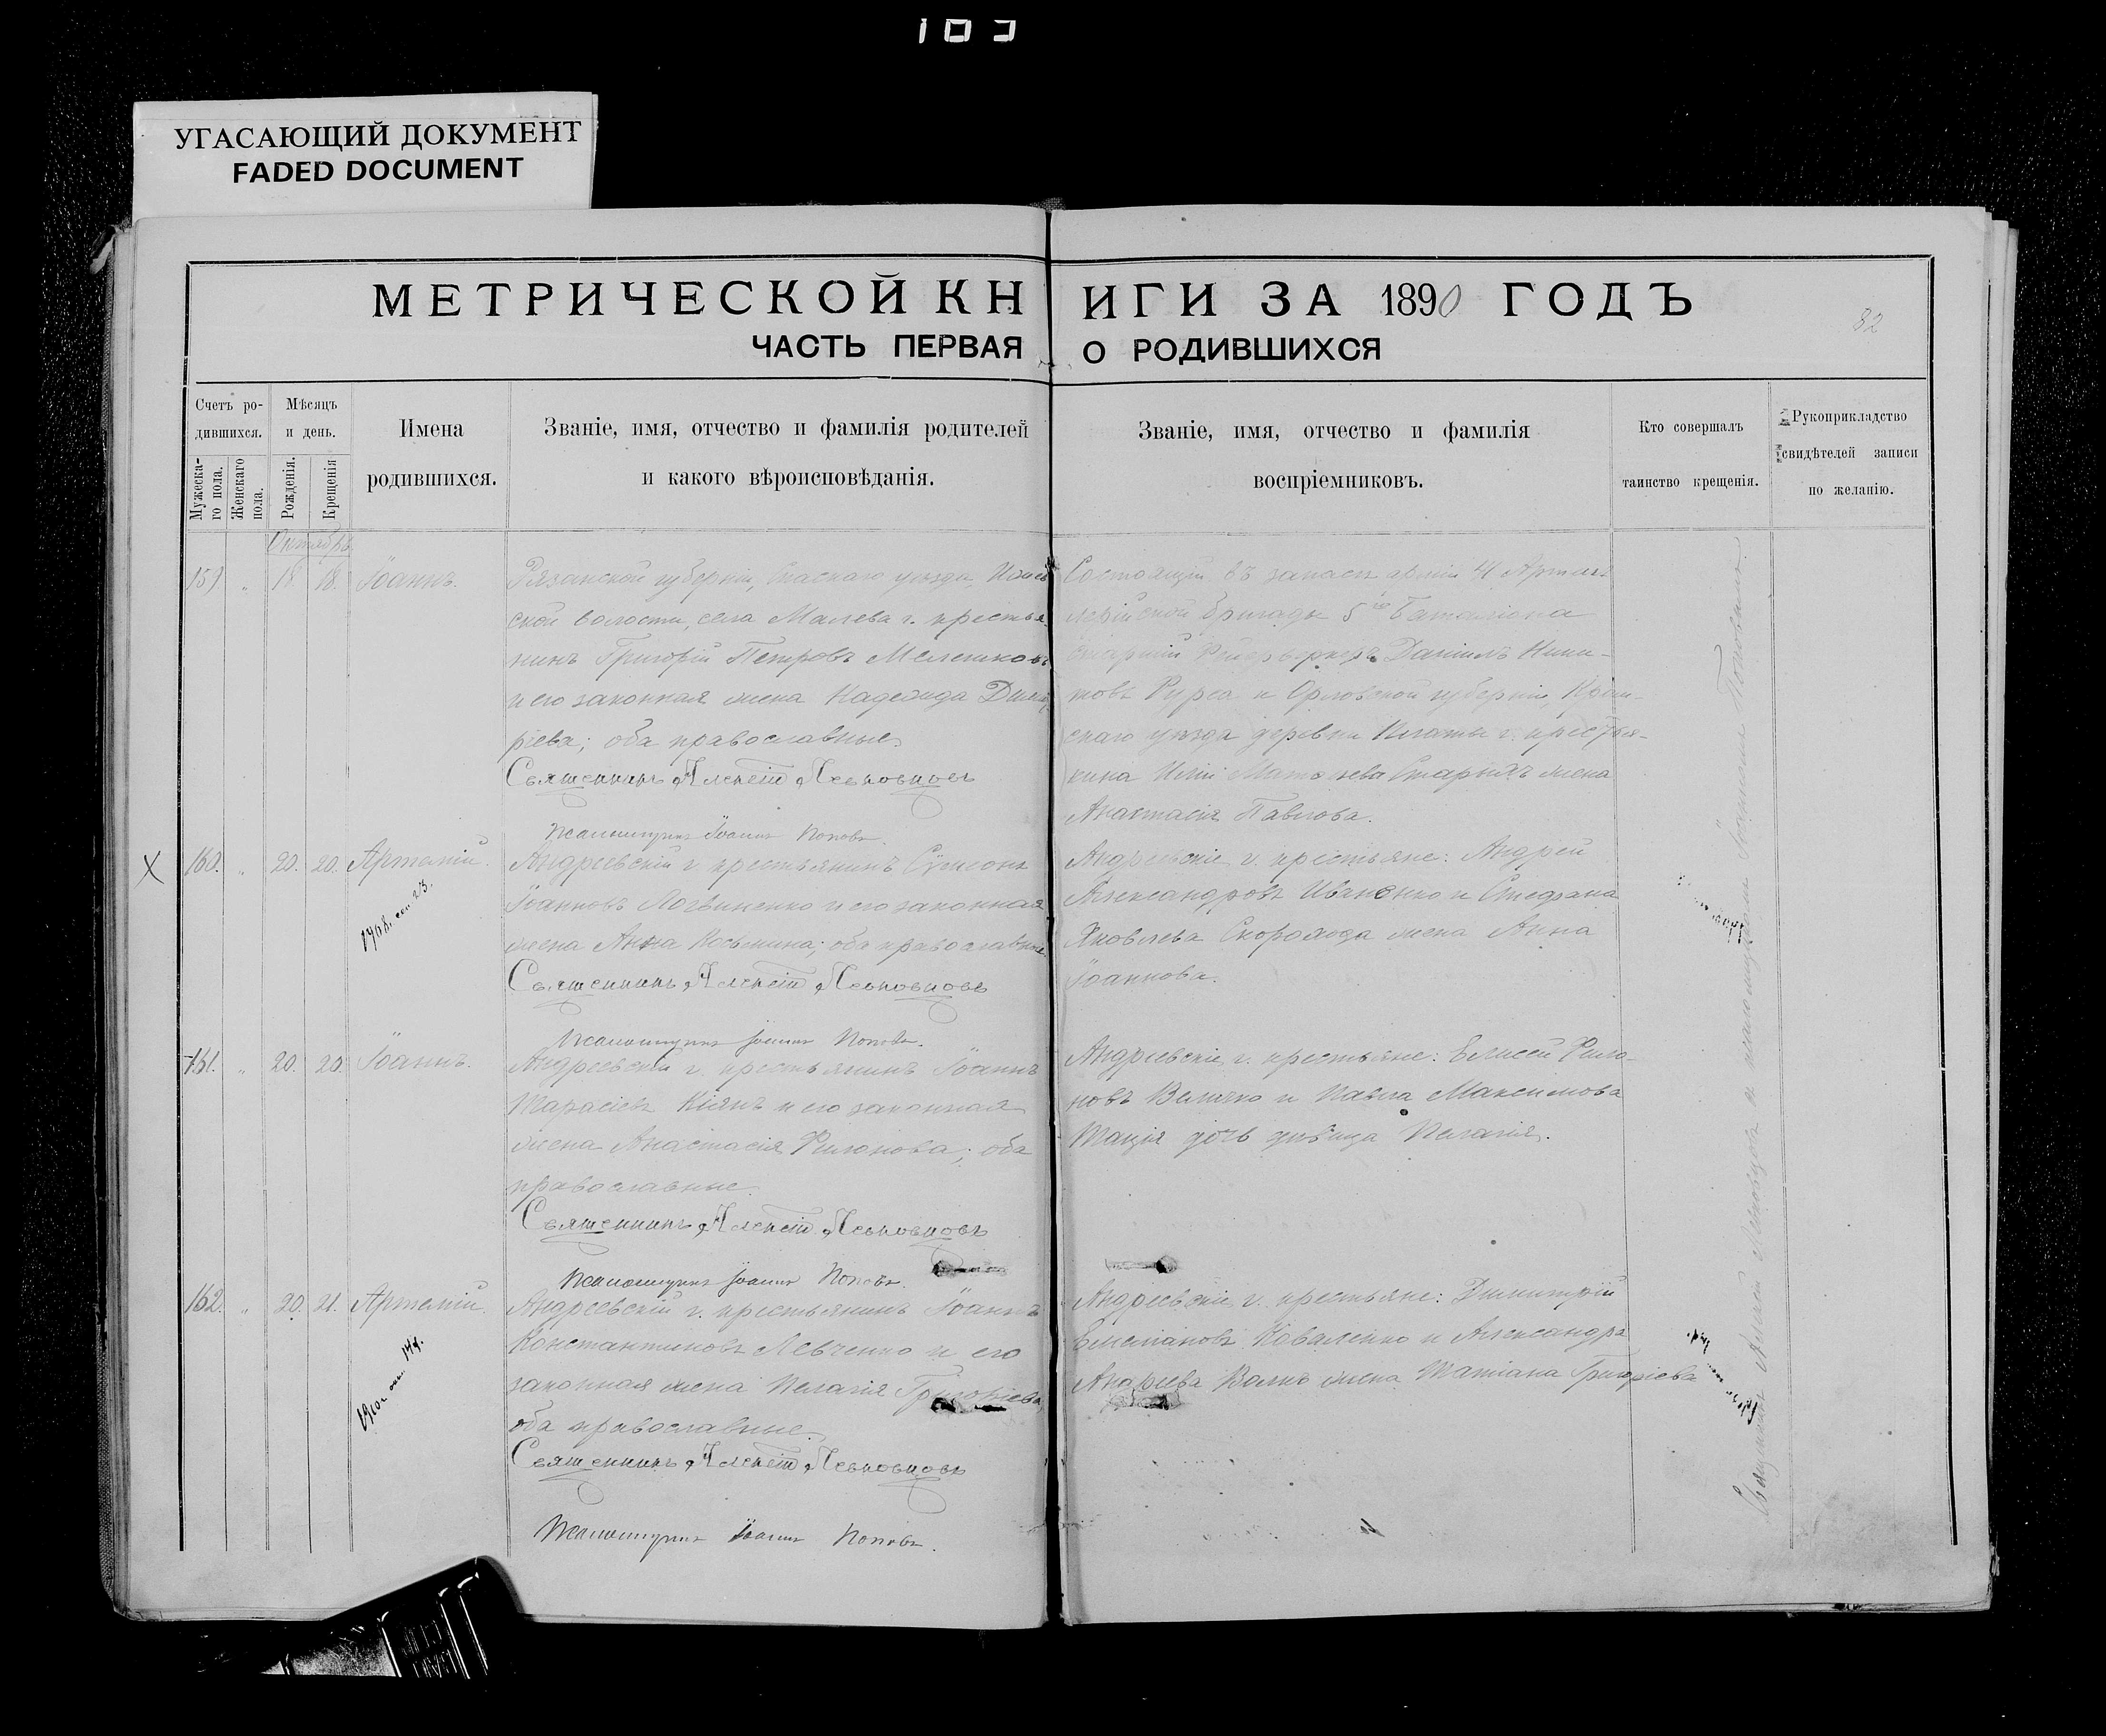 103
УГАСАЮЩИЙ ДОКУМЕНТ
FADED DOCUMENT
МЕТРИЧЕСКОЙ КНИГИ ЗА 1890 ГОДЪ
82
ЧАСТЬ ПЕРВАЯ О РОДИВШИХСЯ
Счетъ родившихся.
Мужескаго пола.
Женскаго пола.
Мѣсяцъ и день.
Рожденія.
Крещенія
Имена
родившихся.
Званіе, имя, отчество и фамилія родителей
и какого вѣроисповѣданія.
Званіе, имя, отчество и фамилія
воспріемниковъ.
Кто совершалъ
таинство крещенія.
Рукоприкладство
свидѣтелей записи
по желанію.
Октябрь
159 " 18 18. Іоаннъ.
Рязанской губерніи, Спаскаго уѣзда,
ской волости, села Малева г. крестья-
нинъ Григорій Петровъ Мелешковъ
и его законная жена Надежда Димит-
ріева; оба православные.
Священникъ Алексій Левковцовъ
Псаломщикъ Іоаннъ Поповъ.
Состоящій въ запасѣ арміи 41 Артил-
лерійской бригады 5го Баталіона
Старшій Фейерверкеръ Даніилъ Ники-
товъ и Орловской губерніи,
скаго уѣзда деревни г. крестья-
нина Иліи Матѳіева Старыхъ жена
Анастасія Павлова.
160. " 20. 20. Артемій.
Андреевскій г. крестьянинъ Сумсонъ
Іоанновъ Логвиненко и его законная
жена Анна Косьмина; оба православные.
Священникъ Алексій Левковцовъ
Псаломщикъ Іоаннъ Поповъ.
Андреевскіе г. крестьяне: Андрей
Александровъ Иваненко и Стефана
Яковлева Скорохода жена Анна
Іоаннова.
161. " 20. 20. Іоаннъ.
Андреевскій г. крестьянинъ Іоаннъ
Тарасіевъ Кіянъ и его законная
жена Анастасія Филонова; оба
православные.
Священникъ Алексій Левковцовъ
Псаломщикъ Іоаннъ Поповъ.
Андреевскіе г. крестьяне: Елисей Фило-
новъ Величко и Павла Максимова
Мація дочь дѣвица Пелагія.
162. " 20. 21. Артемій.
Андреевскій г. крестьянинъ Іоаннъ
Константиновъ Левченко и его
законная жена Пелагія Григоріева,
оба православные.
Священникъ Алексій Левковцовъ
Псаломщикъ Іоаннъ Поповъ.
Андреевскіе г. крестьяне: Димитрій
Емеліановъ Коваленко и Александра
Андреева Волкъ жена Татіана Григоріева
Священникъ Алексій Левковцовъ и псаломщикомъ Іоанномъ Поповымъ